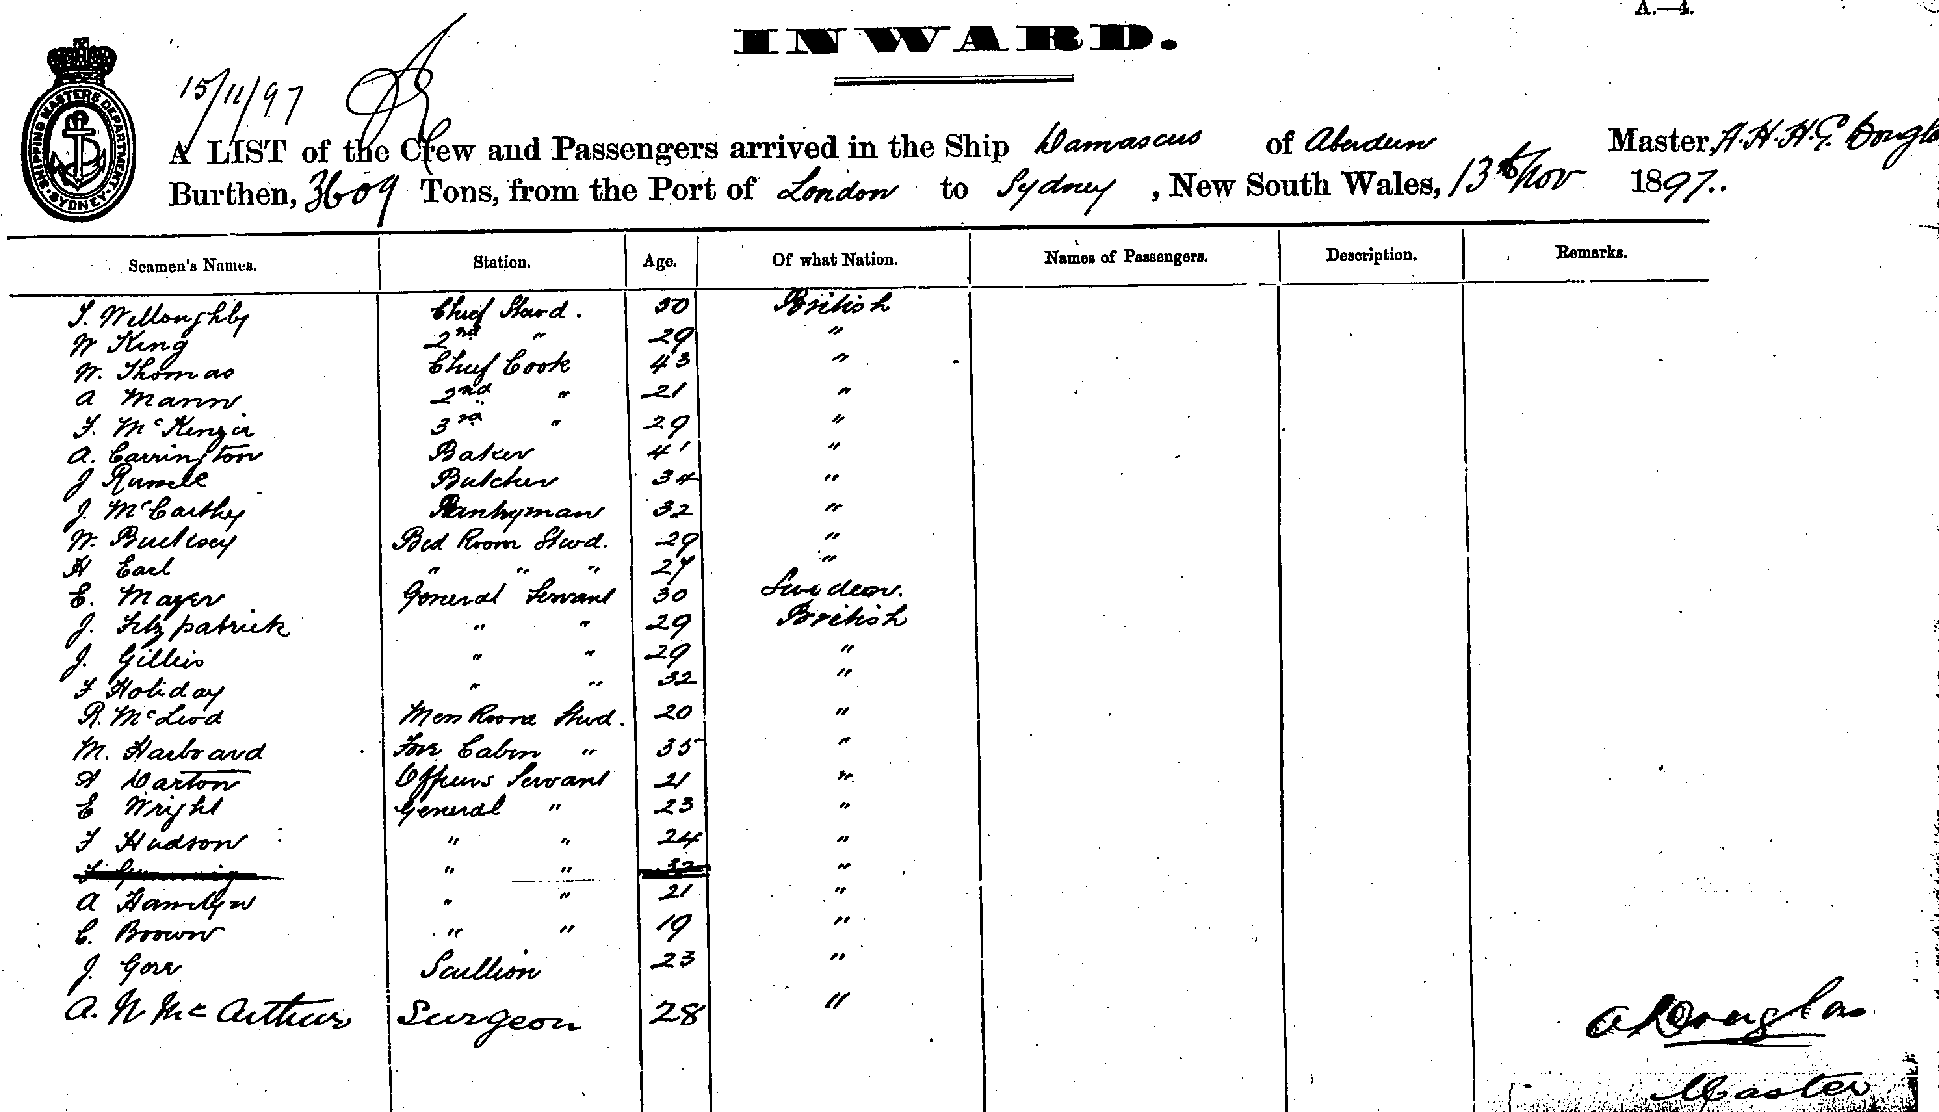 A.—4.
INWARD.
SHIPPING MASTERS DEPARTMENT. SYDNEY
15/11/97
A LIST of the Crew and Passengers arrived in the Ship Damascus of Aberdeen Master, A. H. H. G. Douglas
Burthen, 3609 Tons, from the Port of London to Sydney, New South Wales, 13th Nov 1897.
Seamen's Names. Station. Age. Of what Nation. Names of Passengers. Description. Remarks.
T. Willoughby Chief Stwd. 30 British
W King 2nd " 29 "
W. Thomas Chief Cook 43 "
A Mann 2nd " 21 "
F. McKenzie 3rd " 29 "
A. Carrington Baker 41 "
J Butcher 34 "
J. McCarthy Pantryman 32 "
W. Bed Room Stwd. 29 "
H Earl " " " 27 "
E. Mayer General Servant 30 Sweden.
J. Fitzpatrick " " 29 British
J. Gillies " " 29 "
F Holiday " " 32 "
R. McLeod Mess Room Stwd. 20 "
M. Harboard Fore Cabin " 35 "
A Darton Officers Servant 21 "
E Wright General " 23 "
F Hudson " " 24 "
" " 32 "
A Hamilyn " " 21 "
C. Brown " " 19 "
J. Gore Scullion 23 "
A. N McArthur Surgeon 28 "
A Douglas
Master